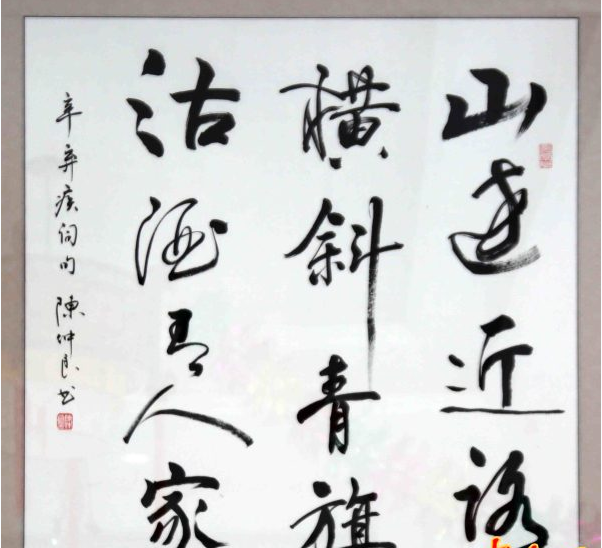 山遠近路
横斜青旗
沽酒有人家
辛弃疾词句 陳良书